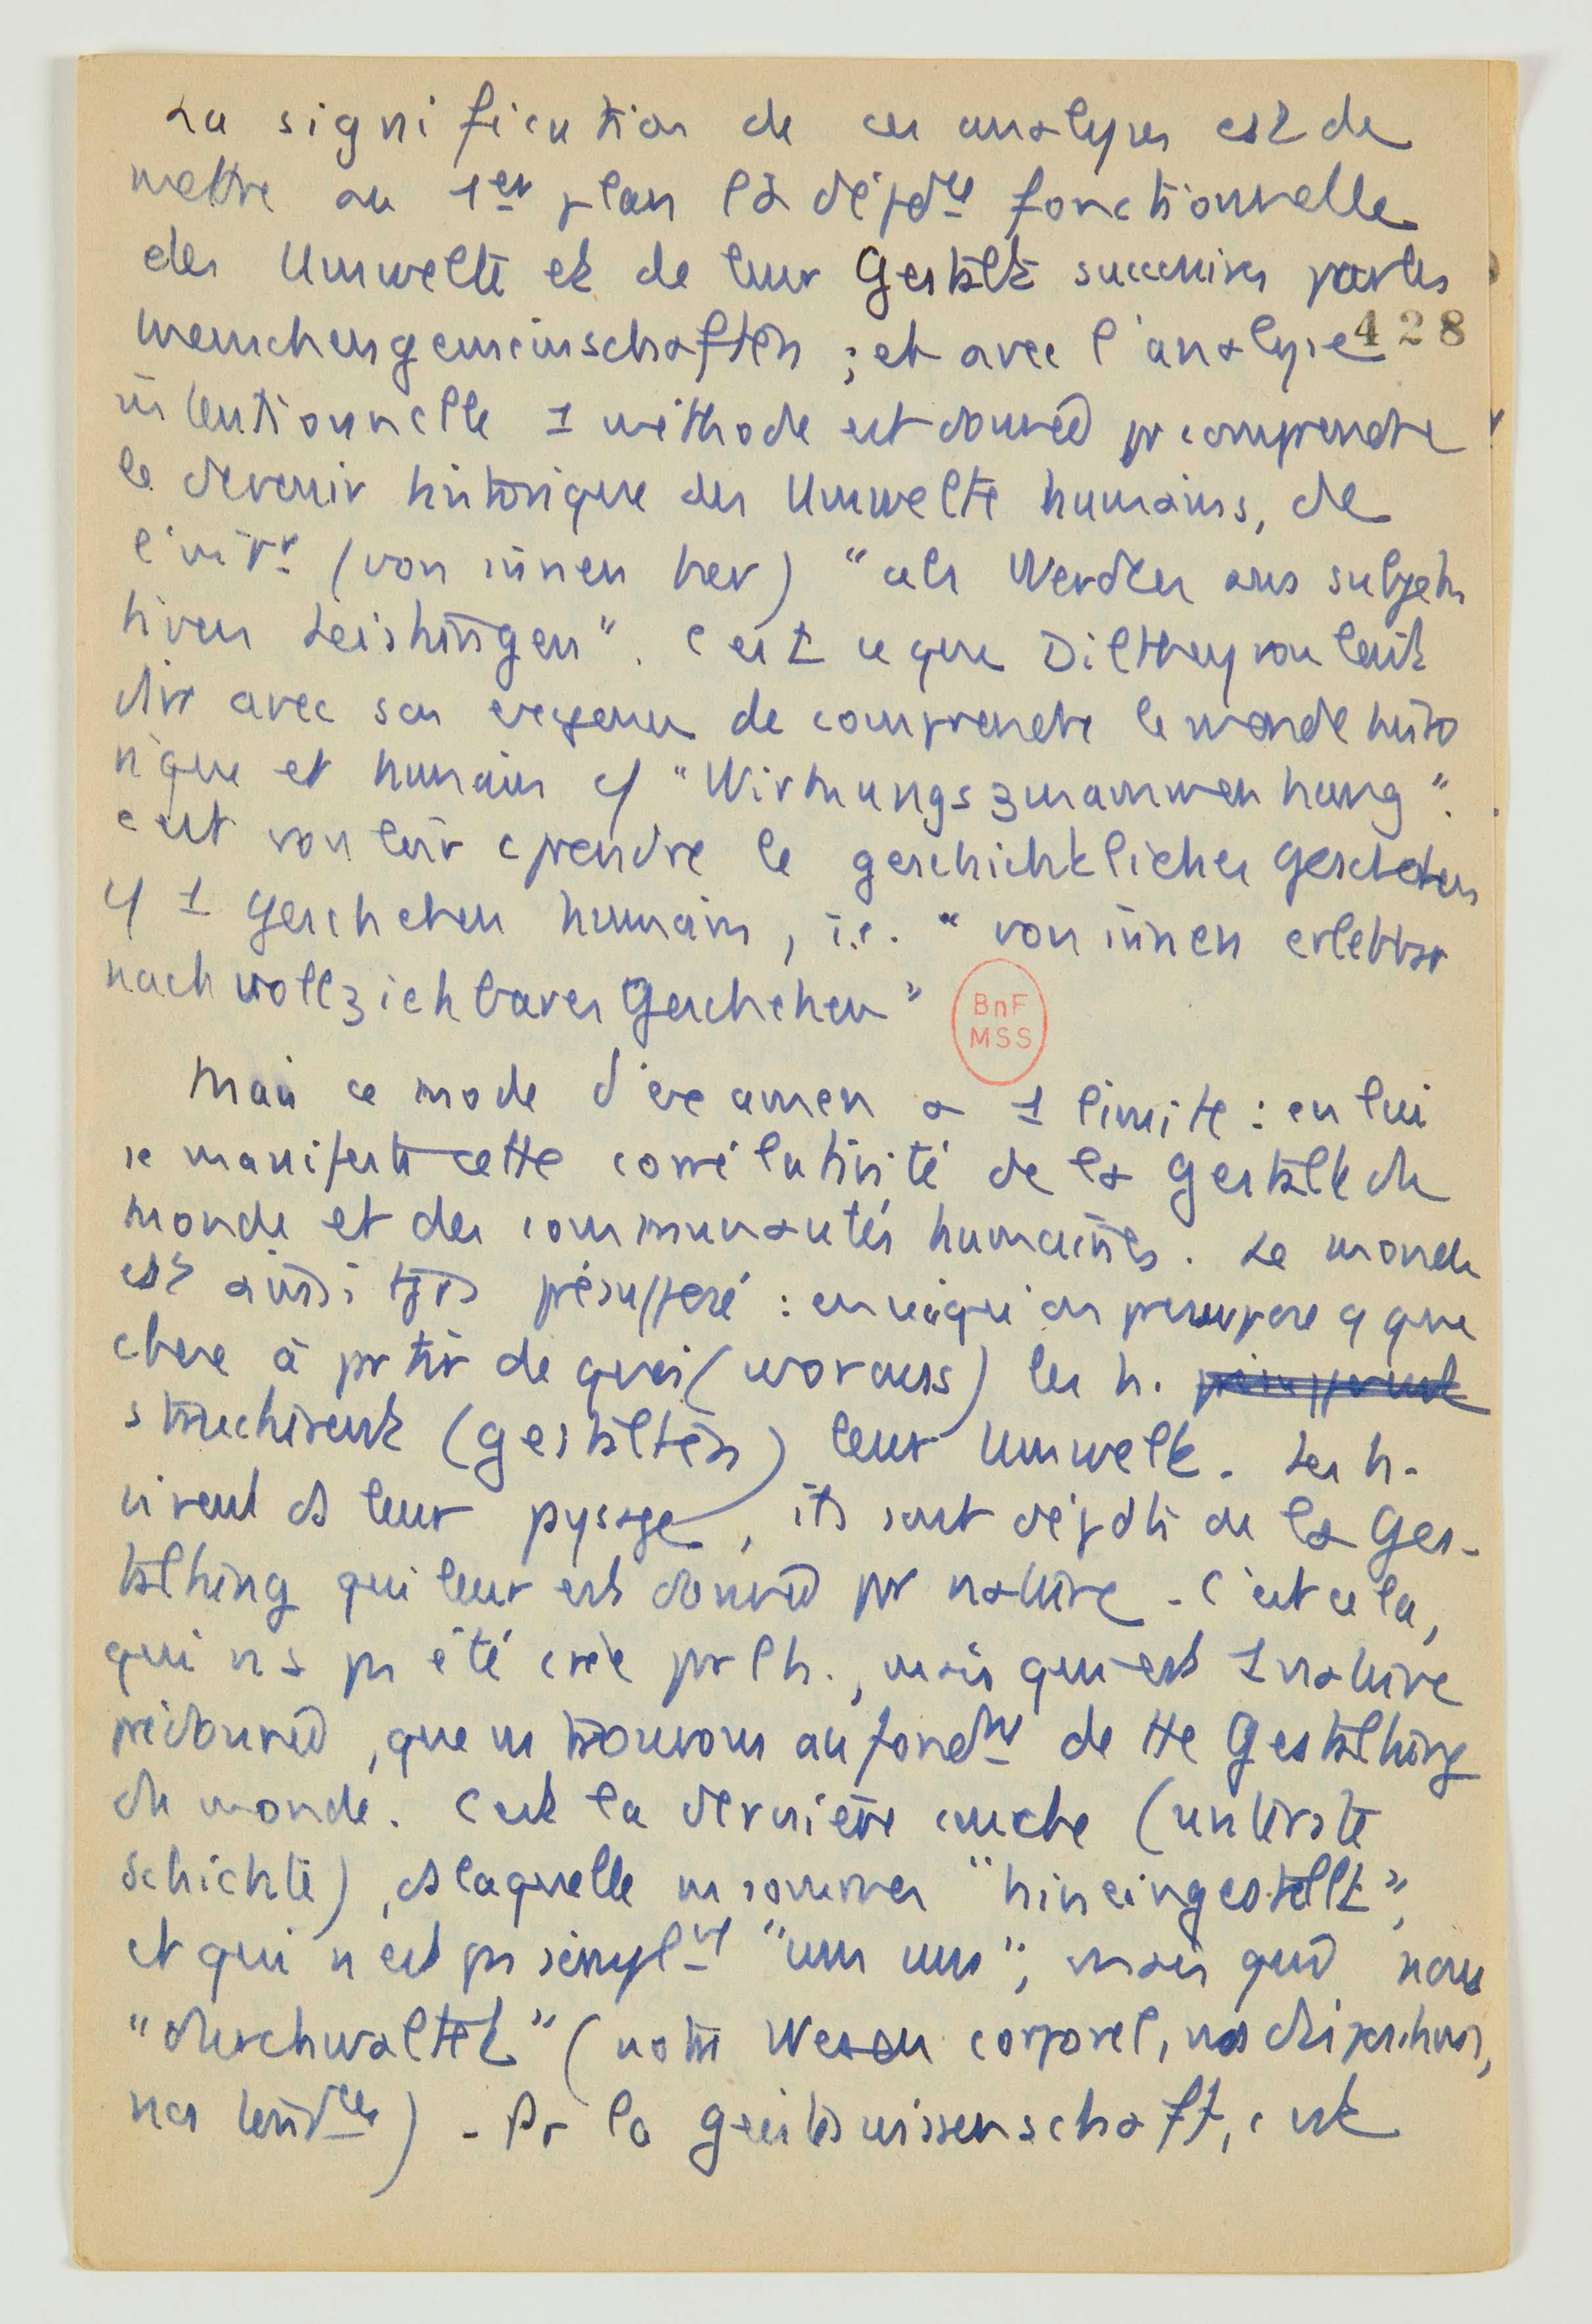 La signification de ces analyses est de
mettre au 1er plan la dépdce fonctionnelle
des Umwelte et de leur Gestalt successives par les
Menschengemeinschaften ; et avec l'analyse
428
intentionnelle 1 méthode est donnée pr comprendre
le devenir historique des Umwelte humains, de
l'intr (von innen her) "als Werden aus subjek
tiven Leistungen". C'est ce que Dilthey voulait
dire avec son exigence de comprendre le monde histo
rique et humain "Wirkungszusammenhang".
c'est vouloir cprendre le geschichtliches Geschehen
1 Geschehen humain, i.e. "von innen erlebbar
nachvollziehbares Geschehen"
BnF
MSS
Mais ce mode d'examen a 1 limite : en lui
se manifeste cette corrélativité de la Gestalt du
monde et des communautés humaines. Le monde
est ainsi tjrs présupposé : en ceci qu'on presuppose qque
chose à partir de quoi (woraus) les h.
structurent (gestalten) leur Umwelt. Les h.
vivent ds leur paysage, ils sont dépdts de la Ges-
taltung qui leur est donnée par nature. C'est cela,
qui n'a pas été créé par l'h., mais qui est 1 nature
prédonnée, que ns trouvons au fondmt de tte Gestaltung
du monde. C'est la dernière couche (unterste
Schichte), ds laquelle ns sommes "hineingestellt",
et qui n'est pas simplmt "um uns", mais qui nous
"durchwaltet" (notre Wesen corporel, nos dispositions,
nos tendces). Pr la Geisteswissenschaft, c'est